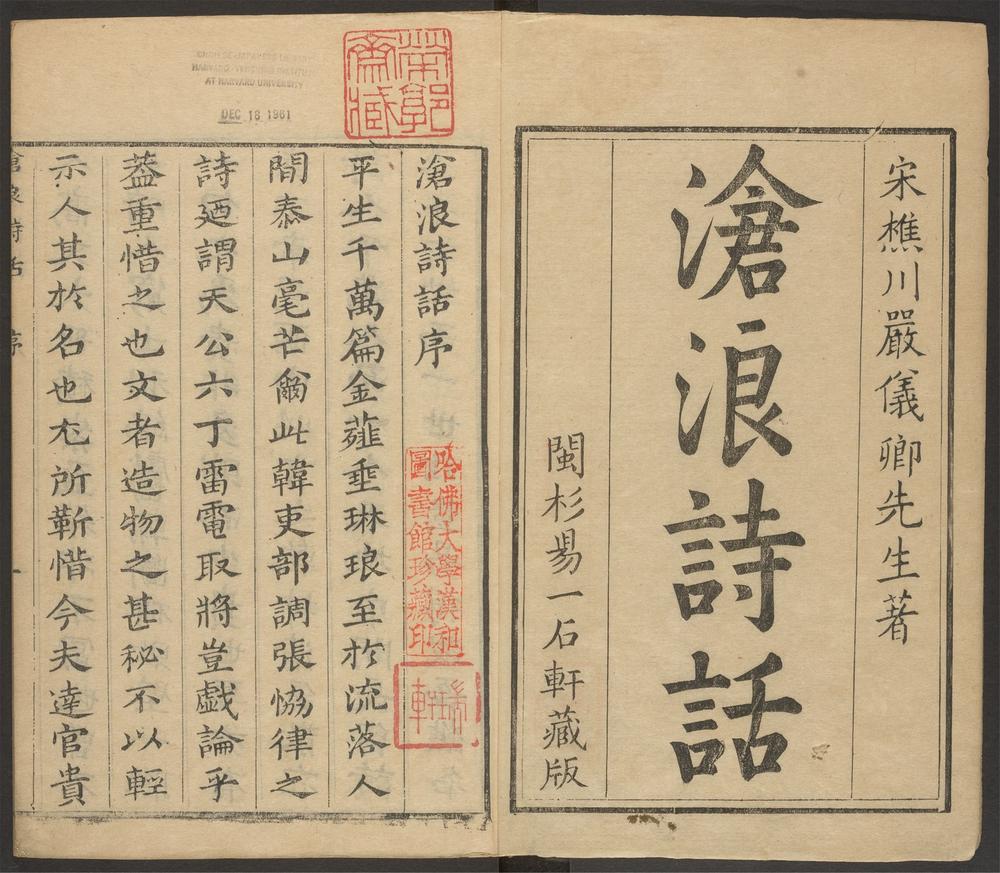 宋樵川嚴儀卿先生著
滄浪詩話
閩杉昜一石軒藏版
滄浪詩話序
平生千萬篇金薤垂琳琅至於流落人
間泰山毫芒爾此韓吏部調張恊律之
詩廼謂天公六丁雷電取將豈戱論乎
葢重惜之也文者造物之甚秘不以輕
示人其於名也尤所靳惜今夫達官貴
滄浪詩話
序
一
哈佛大學漢和
圖書館珍藏印
齋藏
AT HARVARD UNIVERSITY
DEC 18 1961